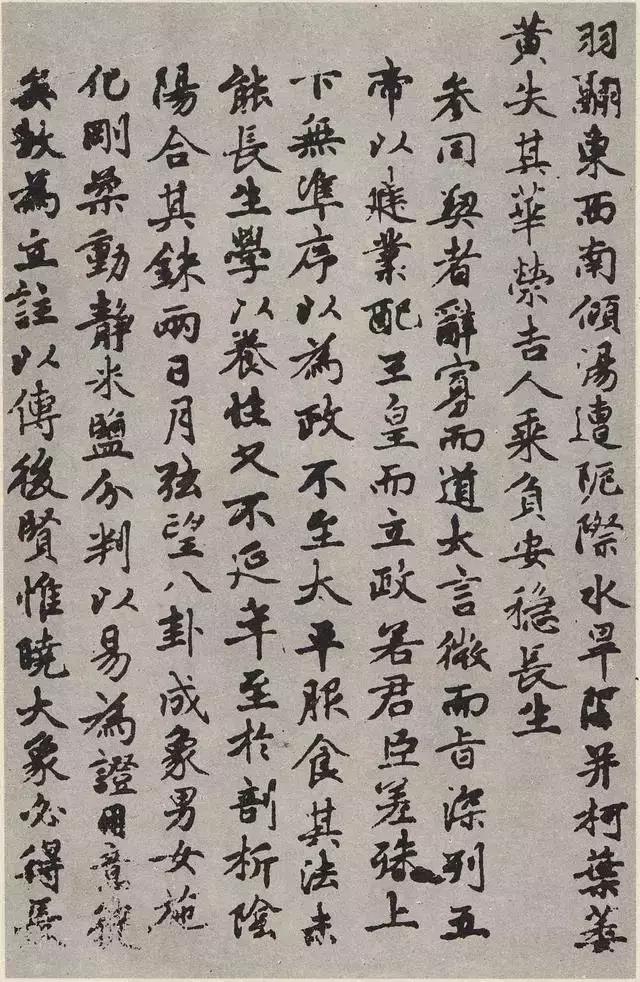 羽翮東西南傾湯遭阨際水旱隔并柯葉萎
黄失其華榮吉人乘負安穩長生
參同契者辭寡而道太言微而旨深列五
帝以建業配三皇而立政若君臣差殊上
下無準序以為政不至太平服食其法未
能長生學以養性又不延年至於剖析陰
陽合其銖兩日月弦望八卦成象男女施
化剛柔動靜米鹽分判以易為證用意健
矣故為立註以傳後賢惟曉大象必得長